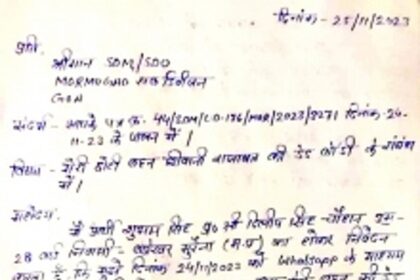 दिनांक - 25/11/2023
प्रति,
श्रीमान SDM/SDO
MORMUGAO सब डिवीजन
GOA
संदर्भ - आपके पत्र क्र. 44/SDM/LO-136/MOR/2023/8271 दिनांक 24-
11-23 के पालन में।
विषय - मेरी छोटी बहन शिवानी की डेड बॉडी के संबंध
में।
महोदय,
मैं प्रार्थी सिंह पु० श्री दिलीप सिंह चौहान उम्र-
28 वर्ष निवासी - मुरैना (म.प्र) का होकर निवेदन
है कि मुझे दिनांक 24/11/2023 को Whatsapp के माध्यम